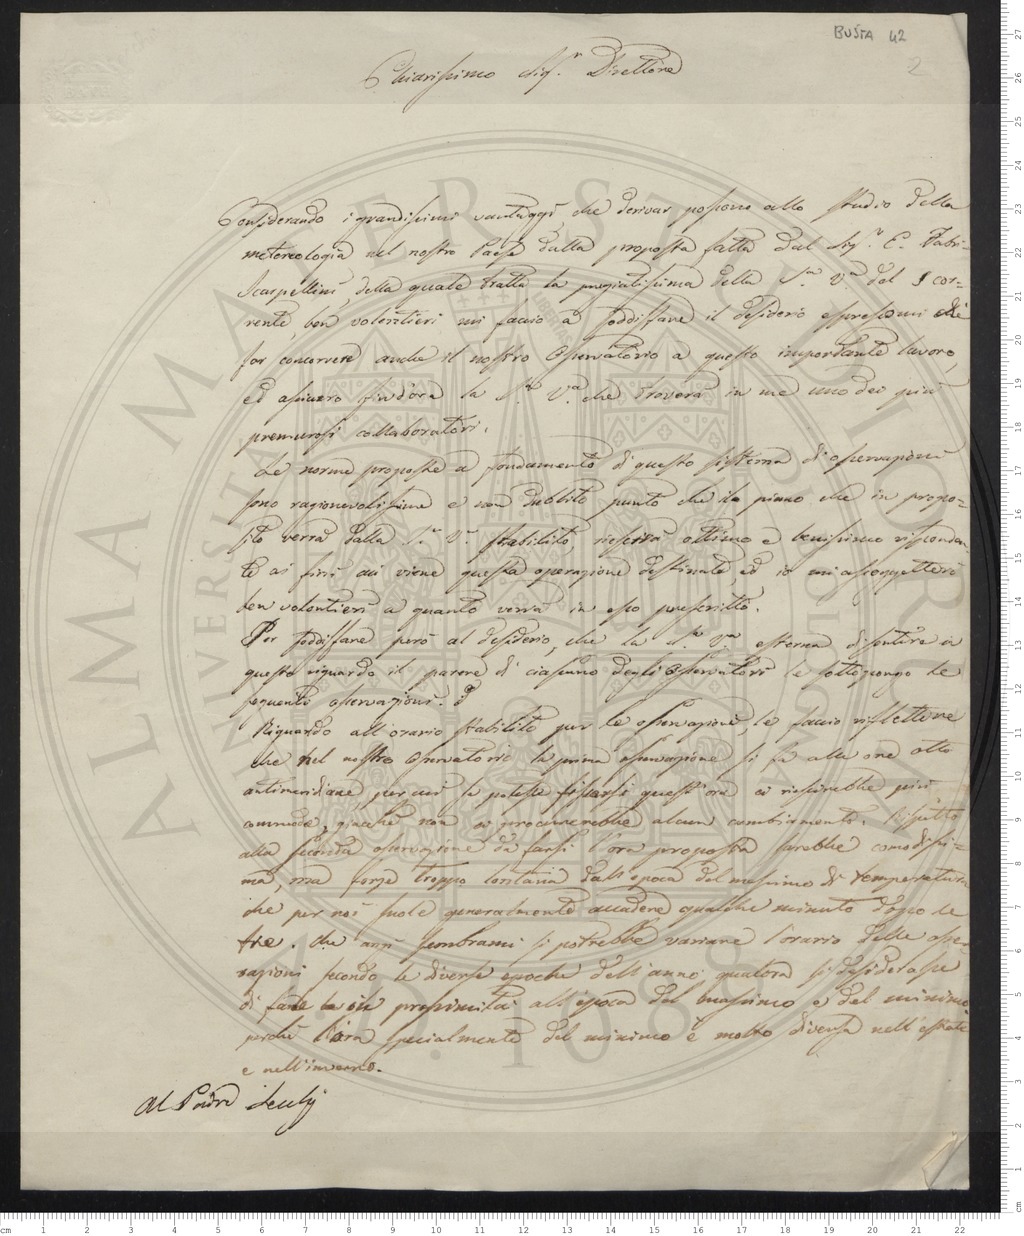 BUSTA 42
2
Chiarissimo Sig.r Direttore
Considerando i grandissimi vantaggi che derivar possono allo studio della
metereologia nel nostro Paese dalla proposta fatta dal Sig.r E. Fabri-
Scarpellini, della quale tratta la pregiatissima della S.a V.a del 9 cor-
rente, ben volentieri mi faccio a soddisfare il desiderio espressomi di
far concorrere anche il nostro Osservatorio a questo importante lavoro,
ed assicuro fin d'ora la S.a V.a che troverà in me uno dei più
premurosi collaboratori.
Le norme proposte a fondamento di questo sistema di osservazioni
sono ragionevolissime e non dubbito punto che il piano che in propo-
sito verrà dalla S.a V.a stabilito, riescirà ottimo e benissimo rispondan-
te ai fini cui viene questa operazione destinata, ed io mi assoggetterò
ben volontieri a quanto verrà in esso prescritto.
Per soddisfare però al desiderio, che la S.a V.a esterna di sentire in
questo riguardo il parere di ciascuno degli Osservatori le sottopongo le
seguenti osservazioni.
Riguardo all'orario stabilito per le osservazioni, le faccio riflettere
che nel nostro Osservatorio la prima osservazione si fa alle ore otto
antimeridiane, per cui se potesse fissarsi quest'ora ci riescirebbe più
commoda, giacchè non ci procurerebbe alcun cambiamento. Rispetto
alla seconda osservazione da farsi l'ora proposta sarebbe comodissi-
ma, ma forse troppo lontana dall'epoca del massimo di temperatura
che per noi suole generalmente accadere qualche minuto dopo le
tre. Che anzi sembrami si potrebbe variare l'orario delle osser
vazioni secondo le diverse epoche dell'anno qualora si desiderasse
di farle in prossimità all'epoca del massimo e del minimo
perchè l'ora specialmente del minimo è molto diversa nell'estate
e nell'inverno.
Al Padre Secchi
ALMA MATER STUDIORUM
UNIVERSITÀ DI BOLOGNA
A.D. 1088